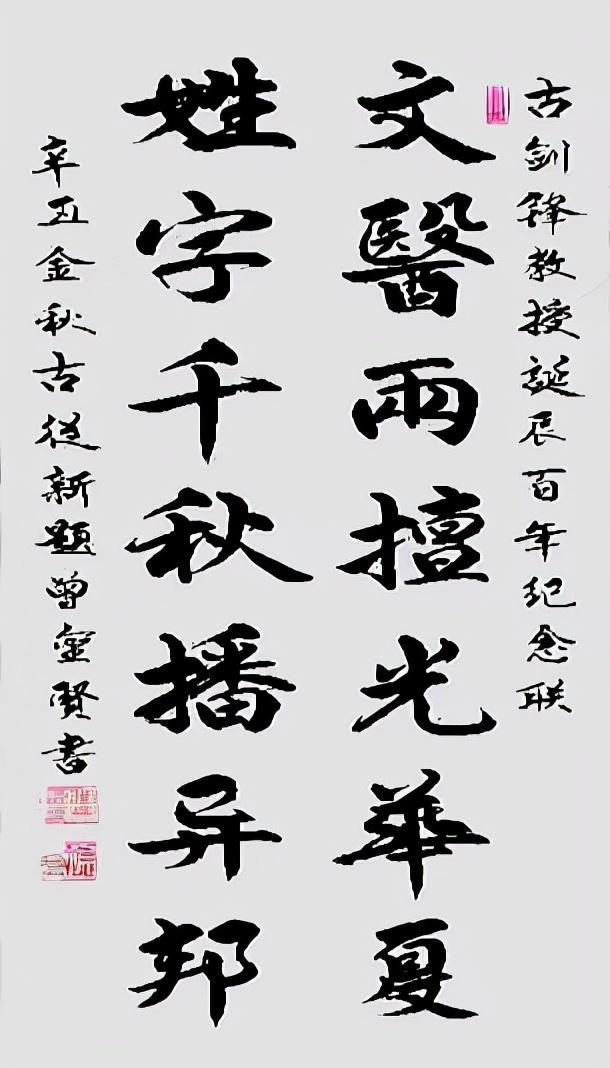 古釗鋒教授誕辰百年纪念联
文醫兩擅光華夏
姓字千秋播异邦
辛丑金秋古從新題曾憲賢書